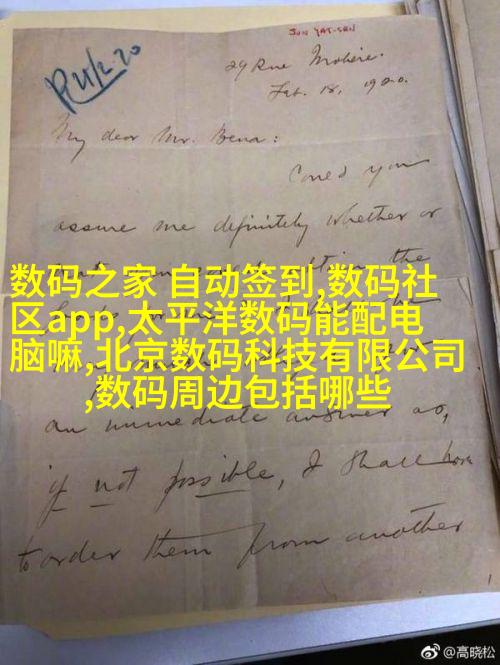 SUN YAT-SEN
R 21/2.20
29 Rue Molière.
Feb. 18, 1920.
My dear Mr. Bena:
Could you
assure me definitely whether or
the
数码之家 自动签到,数码社
区app,太平洋数码能配电
脑嘛,北京数码科技有限公司
,数码周边包括哪些
an immediate answer as,
if not possible, I shall have
to order them from another
@高晓松